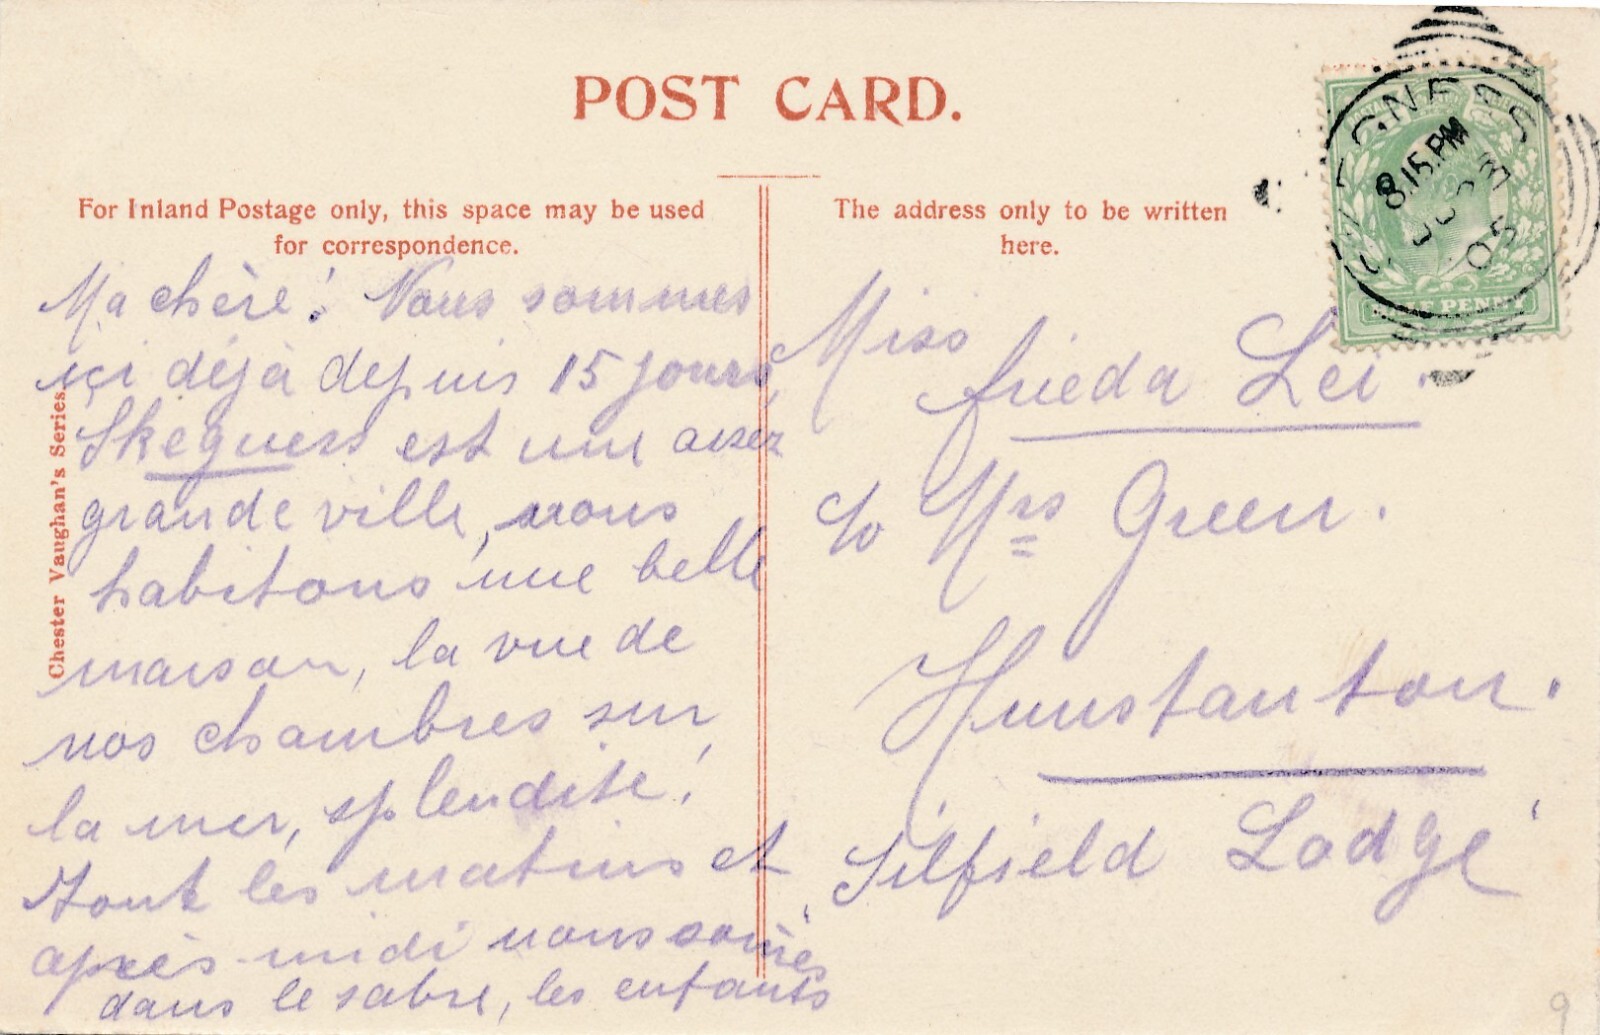 POST CARD.
For Inland Postage only, this space may be used
for correspondence.
The address only to be written
here.
Chester Vaughan's Series.
SKEGNESS
8.15 PM
05
HALF PENNY
Ma chère! Nous sommes
içi déjà depuis 15 jours,
Skegness est une assez
grande ville, nous
habitons une belle
maison, la vue de
nos chambres sur
la mer, splendite!
Tout les matins et
après midi nous somes
dans le sabre, les enfants
Miss
frieda Lei.
c/o Mrs Green.
Hunstanton.
Silfield Lodge
9